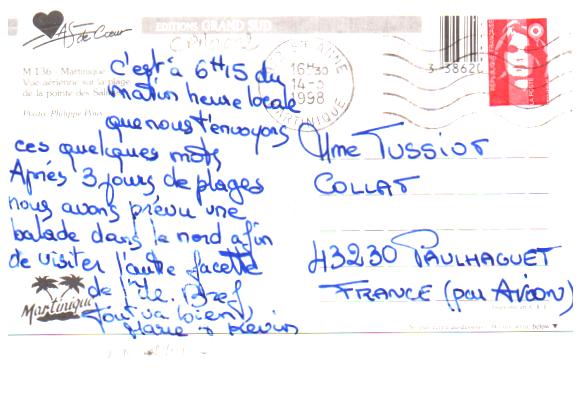 As de Cœur
EDITIONS GRAND SUD
M 136 - Martinique
Vue aérienne sur la plage
de la pointe des
Photo: Philippe
C'est à 6H15 du
matin heure locale
que nous t'envoyons
ces quelques mots
Après 3 jours de plages
nous avons prévu une
balade dans le nord afin
de visiter l'autre facette
de l'île. Bref
tout va bien)
Marie & Kevin
Martinique
16H30
14-5
1998
MARTINIQUE
3 38620
Mme TUSSIOT
COLLAT
43230 PAULHAGUET
FRANCE (par Avion)
below